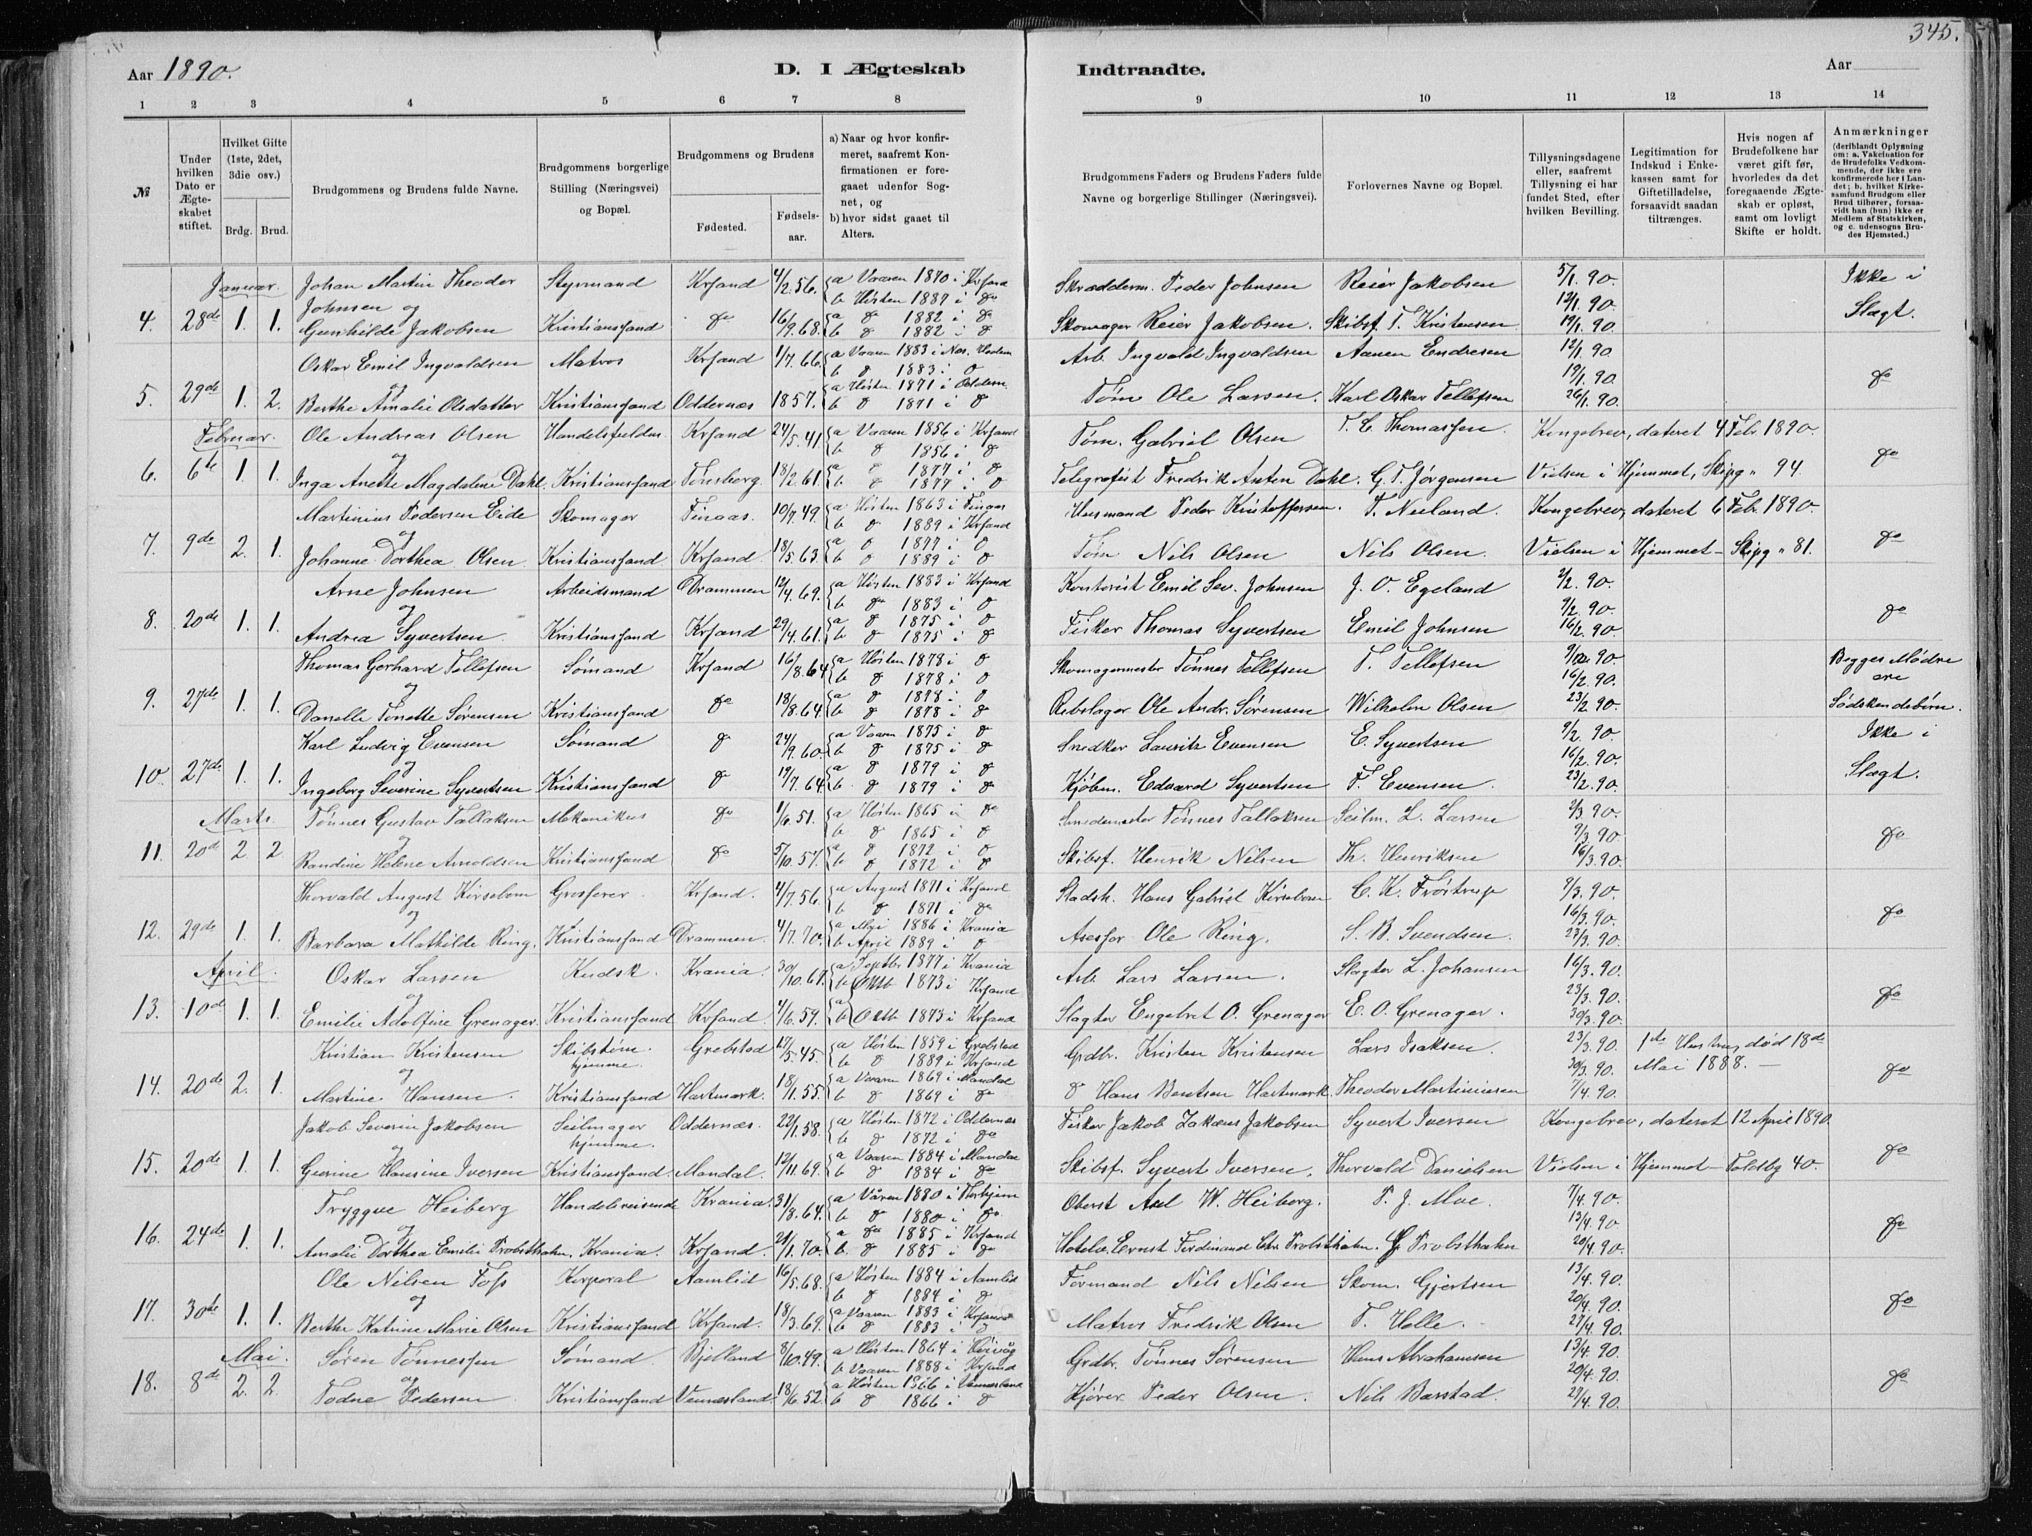 345.
Aar 1890.
D. I Ægteskab Indtraadte.
Aar
1 2 3 4 5 6 7 8 9 10 11 12 13 14
№
Under hvilken Dato er Ægteskabet stiftet.
Hvilket Gifte (1ste, 2det, 3die osv.)
Brdg. Brud.
Brudgommens og Brudens fulde Navne.
Brudgommens borgerlige Stilling (Næringsvei) og Bopæl.
Brudgommens og Brudens
Fødested. Fødselsaar.
a) Naar og hvor konfirmeret, saafremt Konfirmationen er foregaaet udenfor Sognet, og
b) hvor sidst gaaet til Alters.
Brudgommens Faders og Brudens Faders fulde Navne og borgerlige Stillinger (Næringsvei).
Forlovernes Navne og Bopæl.
Tillysningsdagene eller, saafremt Tillysning ei har fundet Sted, efter hvilken Bevilling.
Legitimation for Indskud i Enkekassen samt for Giftetilladelse, forsaavidt saadan tiltrænges.
Hvis nogen af Brudefolkene har været gift før, hvorledes da det foregaaende Ægteskab er opløst, samt om lovligt Skifte er holdt.
Anmærkninger (deriblandt Oplysning om: a. Vakcination for de Brudefolks Vedkommende, der ikke ere konfirmerede her i Landet; b. hvilket Kirkesamfund Brudgom eller Brud tilhører, forsaavidt han (hun) ikke er Medlem af Statskirken, og c. udensogns Brudes Hjemsted.)
Januar. Johan Martin Theodor Styrmand Krsand 4/2.56. a Vaaren 1870 i Krsand Skræddarm. Peder Johnsen Reier Jakobsen 5/1.90. Ikke i
Johnsen og b Høsten 1889 i do 12/1.90. Slægt.
4. 28de 1. 1. Gunhilde Jakobsen Kristianssand do 16/9.68. a do 1882 i do b do 1882 i do Skomager Reier Jakobsen. Skibsf. T. Kristensen 19/1.90.
Oskar Emil Ingvaldsen Matros Krsand 1/7.66. a Vaaren 1883 i b do 1883 i do Arb. Ingvald Ingvaldsen Aanen Endresen 12/1.90
og 19/1.90. do
5. 29de 1. 2. Berthe Amalie Olsdatter Kristianssand Oddernæs 1857. a Høsten 1871 i Oddern. b do 1871 i do Tøm Ole Larsen. Karl Oskar Tellefsen 26/1.90.
Februar. Ole Andreas Olsen Krsand 24/5.41 a Vaaren 1856 i Krsand b do 1856 i do Tøm. Gabriel Olsen T. C. Thomassen. Kongebrev, dateret 4 Febr. 1890.
og do
6. 6te 1. 1. Inga Anette Magdalene Dahl. Kristianssand Tønsberg 18/2.61. a do 1877 i do b do 1877 i do Telegrafist Fredrik Anton Dahl. G. T. Jørgensen Vielsen i Hjemmet, Skipg " 94.
Martinius Pedersen Eide Skomager Finaas. 10/7.49. a Høsten 1863 i Finaas b do 1889 i Krsand Husmand Peder Kristoffersen. T. Nuland. Kongebrev, dateret 6 Febr. 1890.
og do
7. 9de 2. 1. Johanne Dorthea Olsen Kristianssand Krsand. 18/5.63. a do 1877 i do b do 1889 i do Tøm Nils Olsen Nils Olsen. Vielsen i Hjemmet - Skipg " 81.
Arne Johnsen Arbeidsmand Drammen 12/4.69. a Høsten 1883 i Krsand b do 1883 i do Kontorist Emil Sev. Johnsen J. O. Egeland 2/2.90.
og 9/2.90. do
8. 20de 1. 1. Andrea Syvertsen. Kristianssand Krsand 29/4.61. a do 1875 i do b do 1875 i do Fisker Thomas Syvertsen Emil Johnsen 16/2.90.
Thomas Gerhard Tellefsen Sømand Krsand 16/8.64 a Høsten 1878 i do b do 1878 i do Skomagermester Tønnes Tellefsen T. Tellefsen 9/2.90. Begges Mødre
og 16/2.90. ere
9. 27de 1. 1. Danelle Tonette Sørensen Kristianssand do 18/8.64. a do 1878 i do b do 1878 i do Rebslager Ole Andr. Sørensen Wilhelm Olsen 23/2.90. Sødskendebørn.
Karl Ludvig Evensen Sømand do 24/9.60. a Vaaren 1875 i do b do 1875 i do Snedker Lauritz Evensen E. Syvertsen 9/2.90. Ikke i
og 16/2.90.
10. 27de 1. 1. Ingeborg Severine Syvertsen Kristianssand do 19/7.64. a do 1879 i do b do 1879 i do Kjøbm. Edvard Syvertsen T. Evensen. 23/2.90. Slægt.
Marts. Tønnes Gustav Tallaksen Mekanikus do 1/6.51. a Høsten 1865 i do b do 1865 i do Smedemester Tønnes Tallaksen Seilm. L. Larsen 2/3.90.
og 9/3.90. do
11. 20de 2 2 Randine Helene Arnoldsen Kristianssand do 5/10.57. a do 1872 i do b do 1872 i do Skibsf. Henrik Nilsen Th. Henriksen 16/3.90.
Thorvald August Kirsebom Grosserer. Krsand. 4/7.56. a August 1871 i Krsand b do 1871 i do Stadsh. Hans Gabriel Kirsebom C. K. Frøstrup 9/3.90.
og 16/3.90. do
12. 29de 1. 1. Barbara Mathilde Ring. Kristianssand Drammen. 4/7.70. a Mai 1886 i Krania b April 1889 i do Assesor Ole Ring. S. B. Svendsen. 23/3.90.
April. Oskar Larsen Kudsk. Krania. 30/10.61. a Septbr 1877 i Krania b Oktb 1873 i Krsand Arb. Lars Larsen. Slagter L. Johansen 16/3.90.
og 23/3.90. do
13. 10de 1. 1. Emilie Adolfine Grenager. Kristianssand Krsand. 4/6.59. a b Oktb 1873 i Krsand Slagter Engebret O. Grenager E. O. Grenager. 30/3.90.
Kristian Kristensen Skibstøm. hjemme. Grebstad 27/5.45. a Høsten 1859 i Grebstad b do 1889 i Krsand Grdbr. Kristen Kristensen Lars Isaksen. 23/3.90. 1ste Hustru død 18de
og 30/3.90. Mai 1888. — do
14. 20de 2. 1. Martine Hansen. Kristianssand Hartmark. 18/11.55. a Vaaren 1869 i Mandal b do 1869 i do do Hans Berntsen Hartmark. Theodor Martiniusen 7/4.90.
Jakob Severin Jakobsen Seilmager hjemme. Oddernæs. 22/1.58. a Høsten 1872 i Oddernæs b do 1872 i do Fisker Jakob Zakæus Jakobsen Syvert Iversen Kongebrev, dateret 12 April 1890.
og do
15. 20de 1. 1. Gurine Hansine Iversen Kristianssand Mandal. 12/11.69. a Vaaren 1884 i Mandal b do 1884 i do Skibsf. Syvert Iversen. Thorvald Danielsen Vielsen i Hjemmet - Toldbg 40.
Tryggve Heiberg Handelsreisende Krania. 31/8.64. a Våren 1880 i b do 1880 i do. Oberst Axel W. Heiberg. T. J. Moe. 7/4.90.
og 13/4.90 do
16. 24de 1. 1. Amalie Dorthea Emilie Probsthahn. Krania. Krsand. 21/1.70. a do 1885 i Krsand b do 1885 i do Hoteleier Ernst Ferdinand Chr. Probsthahn. Probsthahn 20/4.90.
Ole Nilsen Foss Korporal Aamlid 16/5.68. a Høsten 1884 i Aamlid b do 1884 i do Formand Nils Nilsen Skom. Gjertsen 13/4.90.
og 20/4.90. do
17. 30te 1. 1. Berthe Katrine Marie Olsen Kristianssand Krsand. 18/3.69. a Vaaren 1883 i Krsand b do 1883 i do Matros Fredrik Olsen T. Holle. 27/4.90.
Mai. Søren Tønnessen Sømand. Bjelland. 8/10.49. a Høsten 1864 i b Vaaren 1888 i Krsand Grdbr. Tønnes Sørensen Hans Abrahamsen 13/4.90.
og 20/4.90. do
18. 8de 2. 2. Todne Pedersen Kristianssand Vennesland. 18/6.52. a Høsten 1866 i Vennesland b do 1866 i do Kjører Peder Olsen. Nils Barstad. 27/4.90.